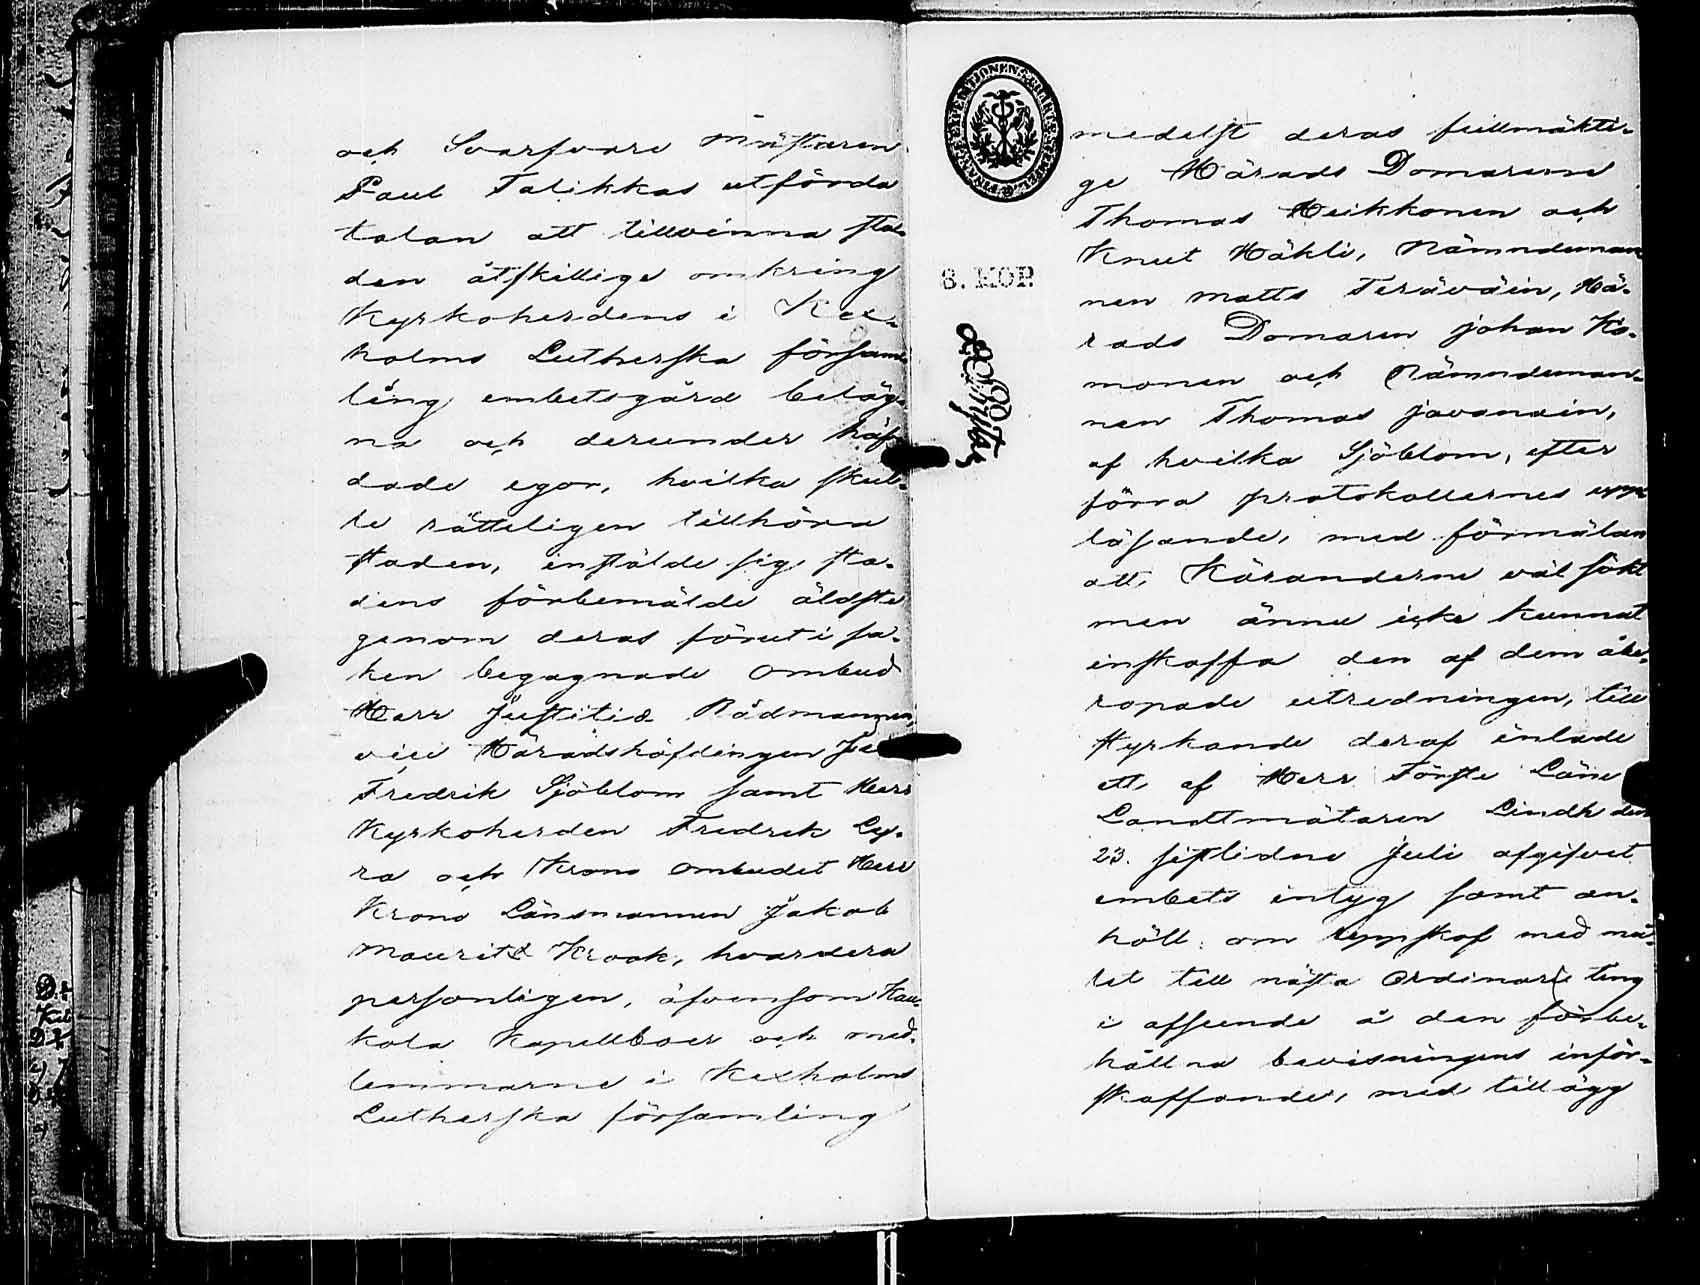 och Svarfvare Mästaren
Paul Talikkas utförda
talan att tillvinna sta-
den åtskillige omkring
Kyrkoherdens i Kex-
holms Lutherska försam-
ling embetsgård beläg-
na och derunder häf-
dade egor, hvilka skul-
le rätteligen tillhöra
staden, instälde sig sta-
dens förbemälde äldste
genom deras förut i sa-
ken begagnade ombud
Herr Justitiæ Rådmannen,
vice Häradshöfdingen
Fredrik Sjöblom samt Herr
Kyrkoherden Fredrik Ly-
ra och Krono ombudet Herr
Krono Länsmannen Jakob
Mauritz Krook, hvardera
personligen, äfvensom Kau-
kola Kapellboer och med-
lemmarne i Kexholms
Lutherska församling
medelst deras fullmäkti-
ge Härads Domarene
Thomas Heikkonen och
Knut Häkli, Nämndeman-
nen Matts Teräväin, Hä-
rads Domaren Johan Ko-
monen och Nämndeman-
nen Thomas Javanain,
af hvilka Sjöblom, efter
förra protokollernes upp-
läsande, med förmälan
att Käranderne väl sökt
men ännu icke kunnat
inskaffa den af dem åbe-
ropade utredningen, till
styrkande deraf inlade
ett af Herr Förste Läne
Landtmätaren Lindh den
23. sistlidne Juli afgifvet
embets intyg samt an-
höll om uppskof med må-
let till nästa ordinarie ting
i afseende å den förbe-
hållna bevisningens inför-
skaffande, med tillägg
8. KOP.